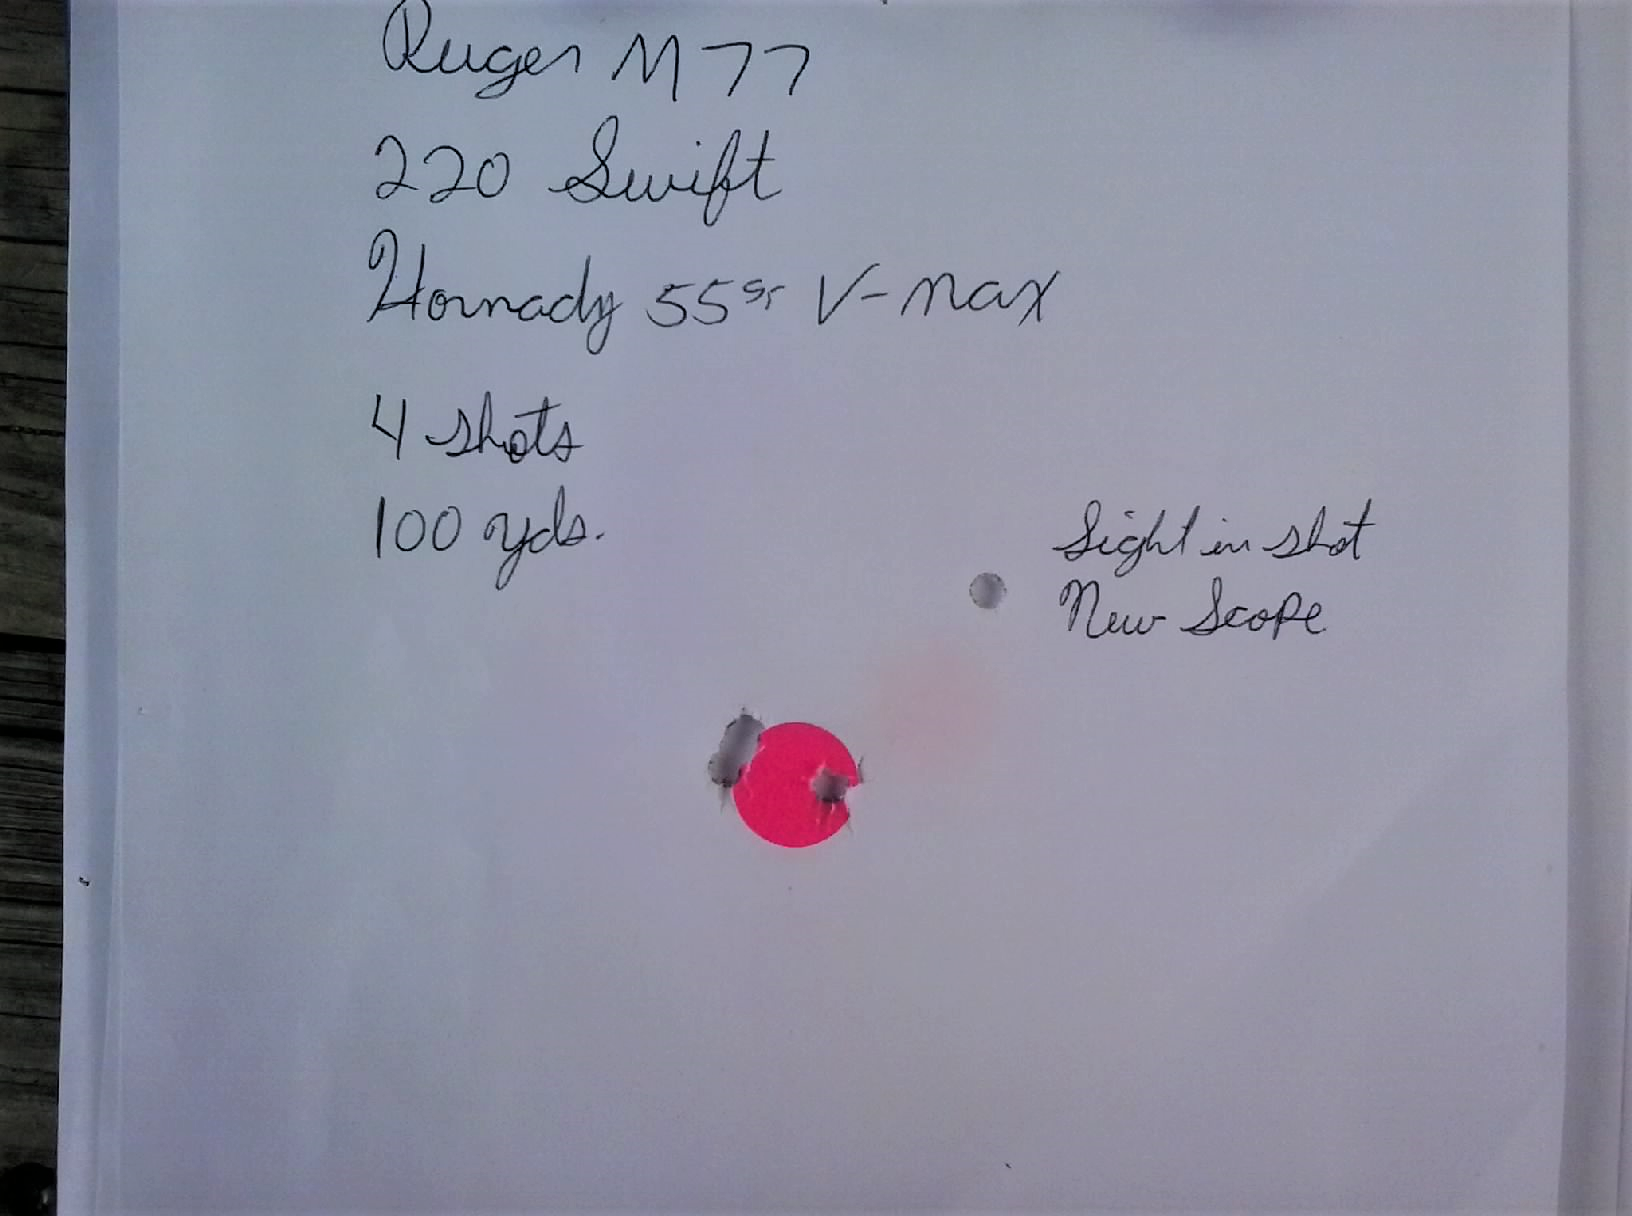 Ruger M77
220 Swift
Hornady 55gr V-max
4 shots
100 yds.
Sight in shot
New Scope